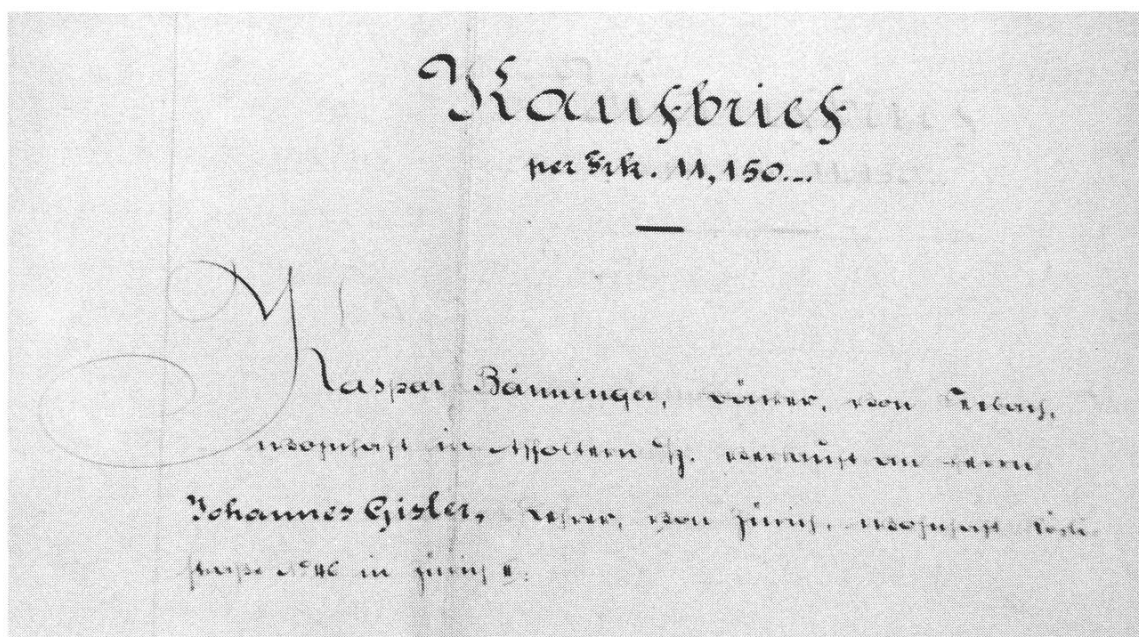 Kaufbrief
per Frk. 11,150.--
Kaspar Bänninger, von
wohnhaft in Affoltern verkauft an Herrn
Johannes Gisler, Lehrer, von Zürich, wohnhaft
straße No 46 in Zürich